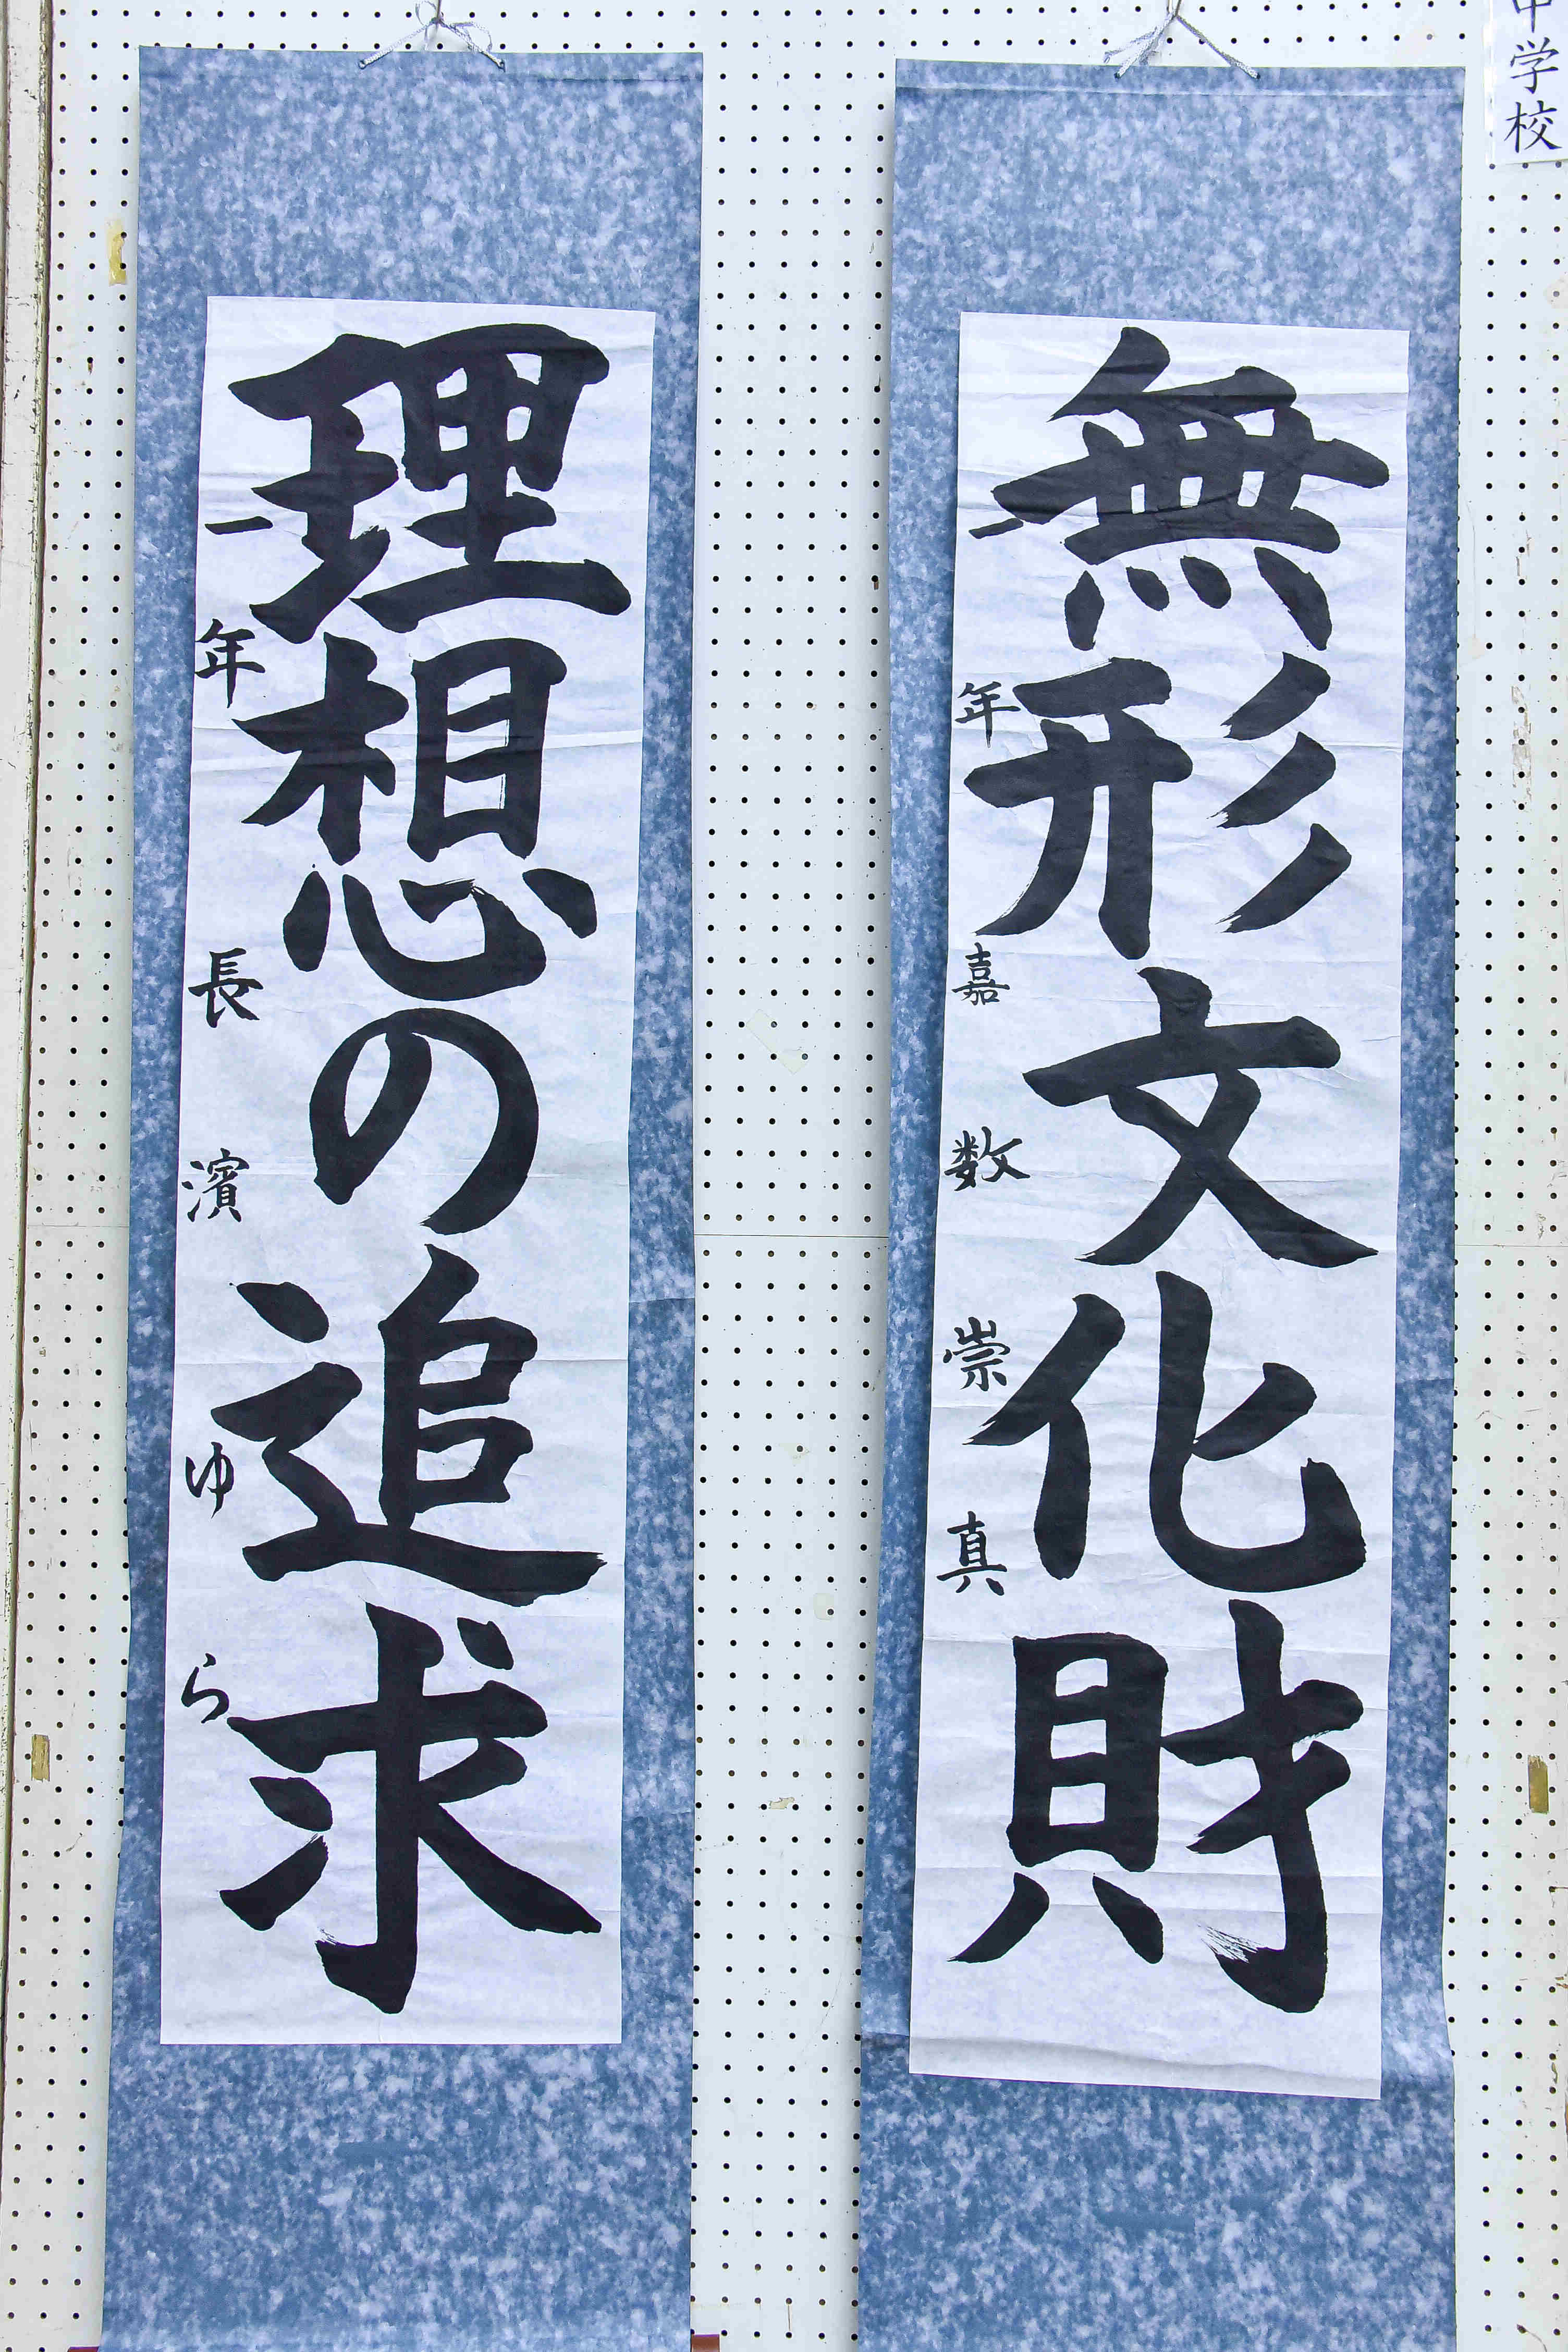 中学校
無形文化財
一年 嘉数崇真
理想の追求
一年 長濱ゆら